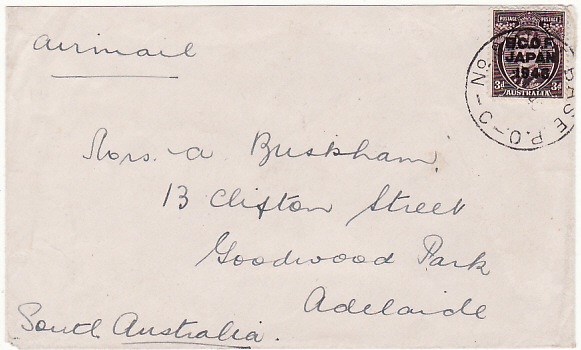 Airmail
POSTAGE POSTAGE
B.C.O.F.
JAPAN
1946
3d AUSTRALIA 3d
BASE P.O.
Mrs. A Buskham
13 Clifton Street
Goodwood Park
Adelaide
South Australia.